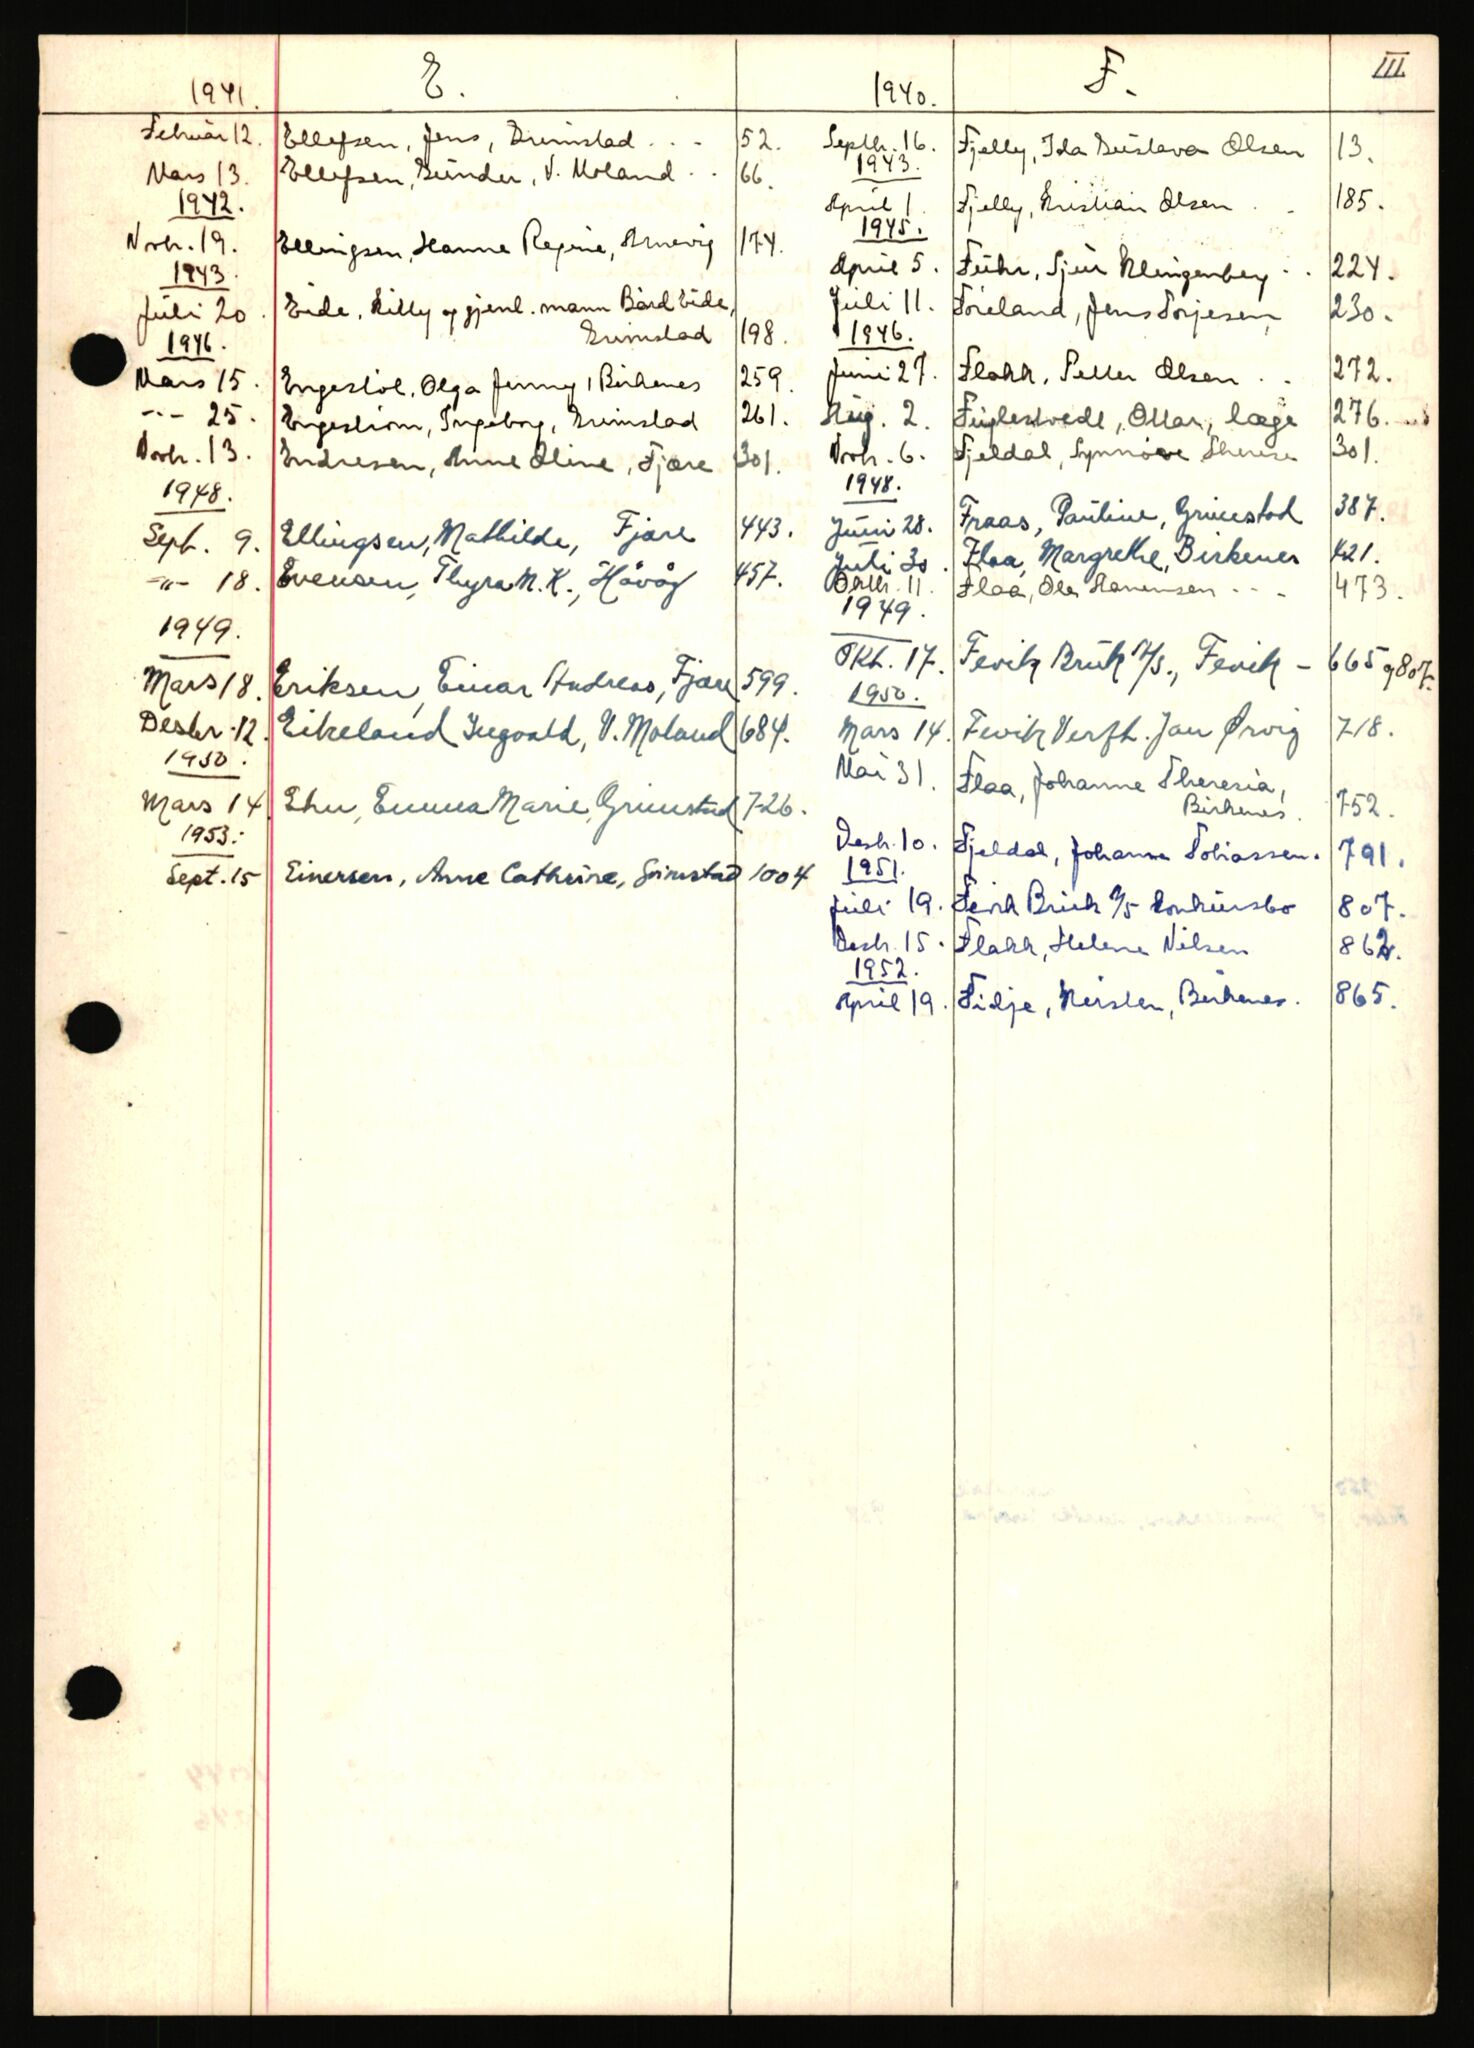 III
1941. E.
Februar 12. Ellefsen, Jens, Grimstad . . . 52.
Mars 13. Ellefsen, Gunder, V. Moland . . 66.
1942.
Novb. 19. Ellingsen, Hanne Regine, 174.
1943
Juli 20. Eide, Killy og gjenl. mann Bård Eide,
Grimstad 198.
1946.
Mars 15. Engestöl, Olga Jenny, Birkenes 259.
-"- 25. Engeström, Ingeborg, Grimstad 261.
Novb. 13. Endresen, Anne Oline, Fjære 301.
1948.
Sept. 9. Ellingsen, Mathilde, Fjære 443.
-"- 18. Evensen, Thyra M. K., Hövåg 457.
1949.
Mars 18. Eriksen, Einar Andreas, Fjære 599.
Desbr. 12. Eikeland Ingvald, V. Moland 684.
1950.
Mars 14 Ehn, Emma Marie, Grimstad 726.
1953:
Sept. 15 Einersen, Anne Cathrine, Grimstad 1004
1940. F.
Septb. 16. Fjelly, Ida Gustava Olsen 13.
1943.
April 1. Fjelly, Kristian Olsen . . 185.
1945.
April 5. Führ, Sjur Klingenberg . . 224.
Juli 11. Föreland, Jens Torjesen, 230.
1946.
Juni 27. Flakk, Petter Olsen . . 272.
Aug. 2. Fuglestvedt, Ottar, læge 276.
Novb. 6. Fjeldal, Synnöve Therese 301.
1948.
Juni 28. Fraas, Pauline, Grimstad 387.
Juli 30. Flaa, Margrethe, Birkenes 421.
Oktb. 11. Flaa, Ole Hanensen . . . 473.
1949.
Okt. 17. Fevik Bruk A/S., Fevik - 665 og 807.
1950.
Mars 14. Fevik Verft. Jan Ørvig 718.
Mai 31. Flaa, Johanne Theresia,
Birkenes. 752.
Desb. 10. Fjeldal, Johanne Tobiassen. 791.
1951.
Juli 19. Fevik Bruk A/S konkursbo 807.
Desb. 15. Flakk, Helene Nilsen 862.
1952.
April 19. Fidje, Kirsten, Birkenes. 865.